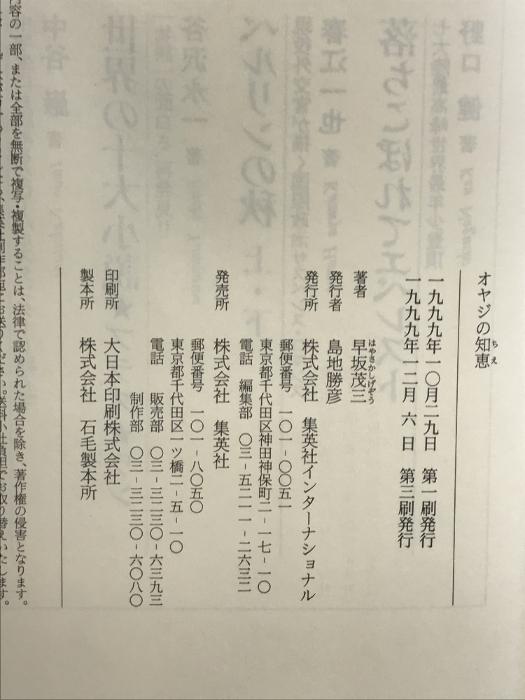 オヤジの知恵
ちえ
一九九九年一〇月二九日 第一刷発行
一九九九年一二月 六 日 第三刷発行
著者 早坂茂三
はやさかしげぞう
発行者 島地勝彦
発行所 株式会社 集英社インターナショナル
郵便番号 一〇一-〇〇五一
東京都千代田区神田神保町二-一七-一〇
電話 編集部 〇三-五二一一-二六三二
発売所 株式会社 集英社
郵便番号 一〇一-八〇五〇
東京都千代田区一ツ橋二-五-一〇
電話 販売部 〇三-三二三〇-六三九三
制作部 〇三-三二三〇-六〇八〇
印刷所 大日本印刷株式会社
製本所 株式会社 石毛製本所
内容の一部、または全部を無断で複写・複製することは、法律で認められた場合を除き、著作権の侵害となります。